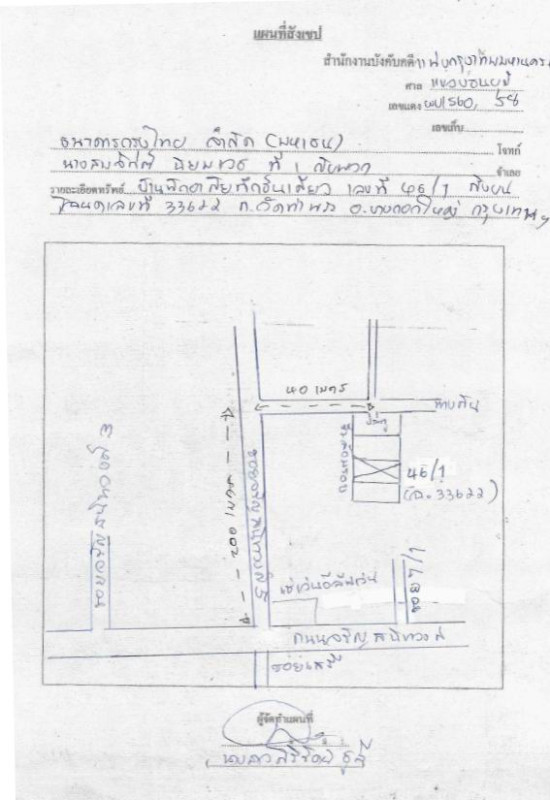 แผนที่สังเขป
สำนักงานบังคับคดีแพ่งกรุงเทพมหานคร
ศาล แขวงธนบุรี
เลขแดง ผบ1560, 58
เลขเก็บ
ธนาคารกรุงไทย จำกัด (มหาชน) โจทก์
ที่ 1 กับพวก จำเลย
รายละเอียดทรัพย์ บ้านพักอาศัยตึกชั้นเดียว เลขที่ 46/1 ตั้งบน
โฉนดเลขที่ 33622 ต.วัดท่าพระ อ.บางกอกใหญ่ กรุงเทพฯ
40 เมตร
ทางเดิน
ประตู
รั้วล้อมรอบ
46/1
(ฉ. 33622)
200 เมตร
ซอยจรัญสนิทวงศ์ 3
ซอยจรัญสนิทวงศ์ 5
เซเว่นอีเลฟเว่น
ซอย 7/1
ถนนจรัญสนิทวงศ์
ผู้จัดทำแผนที่